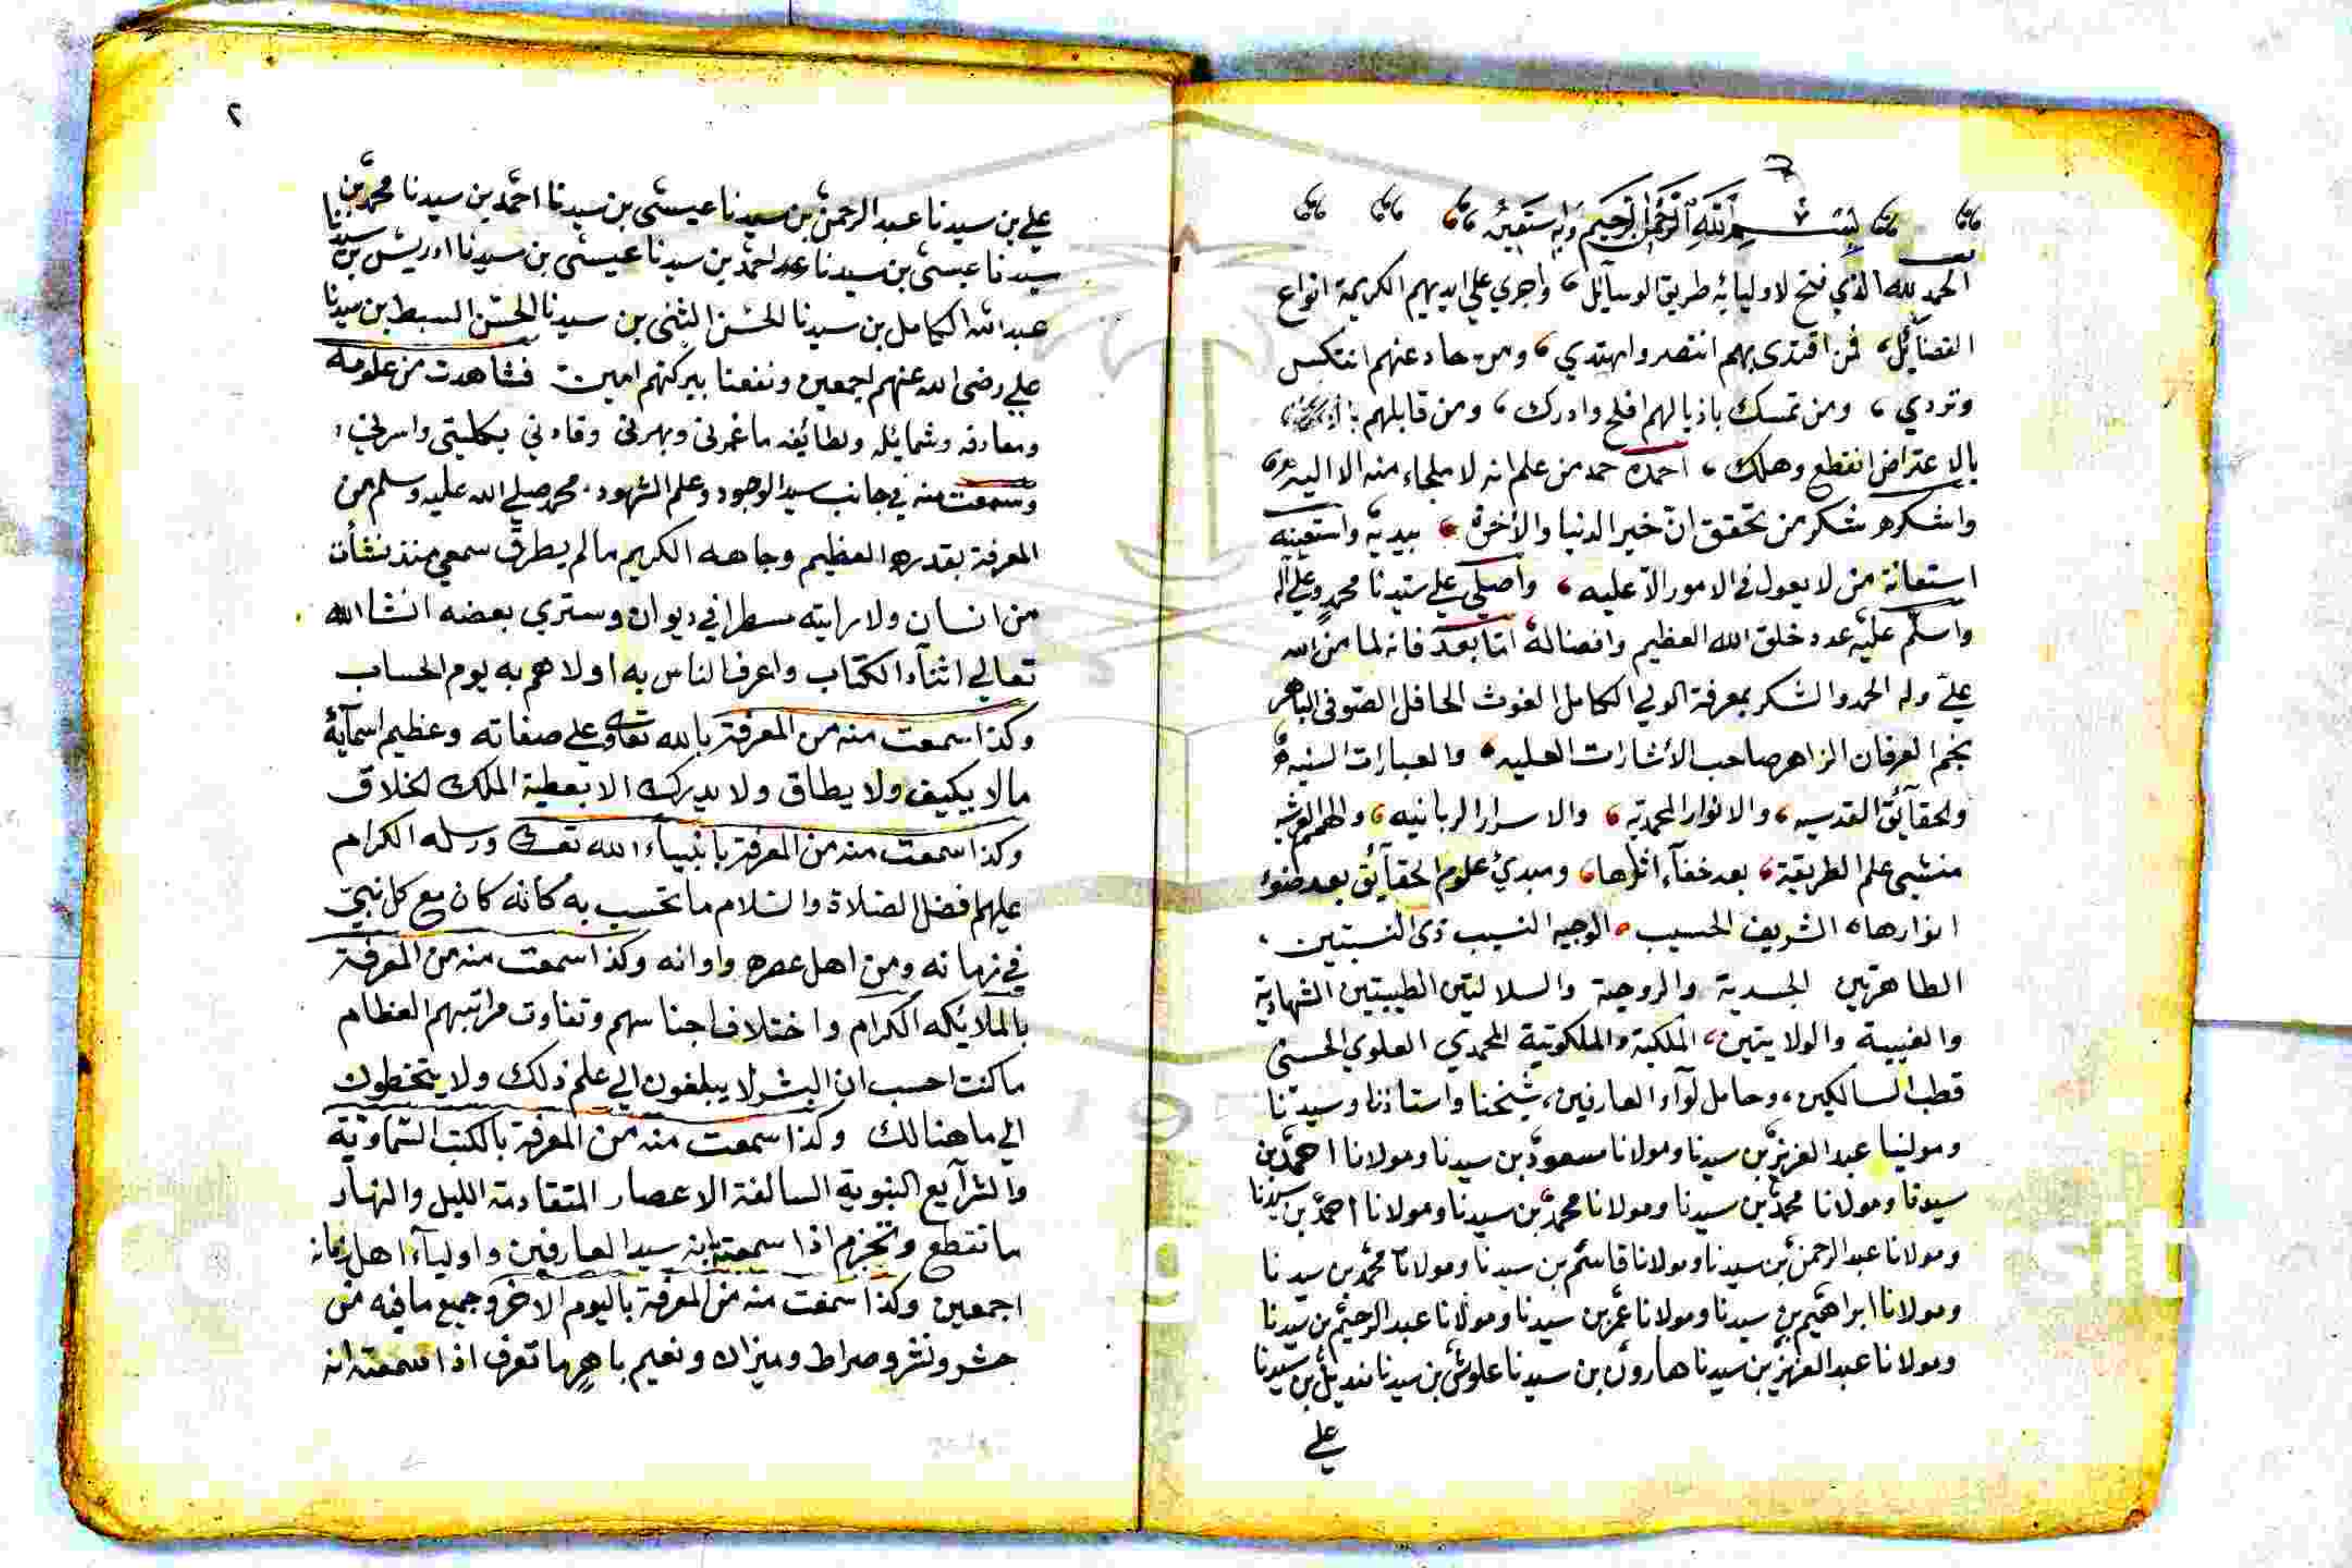 بسم الله الرحمن الرحيم وبه نستعين
الحمد لله الذي فتح لاوليائه طريق الوسآئل، واجري علي ايديهم الكريمة انواع
الفضآئل، فمن اقتدى بهم انتصر واهتدي، ومن حاد عنهم انتكس
وتردي، ومن تمسك باذيالهم افلح وادرك، ومن قابلهم
بالاعتراض انقطع وهلك، احمده حمد من علم انه لا ملجاء منه الا اليه
واشكره شكر من تحقق ان خير الدنيا والآخرة بيديه واستعينه
استعانة من لا يعول في الامور الا عليه، واصلي علي سيدنا محمد وعلي آله
واسلم عليه عدد خلق الله العظيم وافضاله اما بعد فانه لما من الله
علي وله الحمد والشكر بمعرفة الولي الكامل الغوث الحافل الصوفي الباهر
نجم العرفان الزاهر صاحب الأشارات العليه والعبارات السنيه
والحقآئق القدسيه، والانوار المحمدية، والاسرار الربانيه، والهمم العرشيه
منشئ علم الطريقة، بعد خفآء اثارها، ومبدئ علوم الحقآئق بعد
انوارها، الشريف الحسيب، الوجيه النسيب ذي النسبتين،
الطاهرتين الجسدية والروحية والسلالتين الطيبتين الشهادية
والغيبية والولايتين، الملكية والملكوتية المحمدي العلوي الحسني
قطب السالكين، وحامل لوآء العارفين، شيخنا واستاذنا وسيدنا
ومولينا عبد العزيز بن سيدنا ومولانا مسعود بن سيدنا ومولانا احمد بن
سيدنا ومولانا محمد بن سيدنا ومولانا محمد بن سيدنا ومولانا احمد بن سيدنا
ومولانا عبد الرحمن بن سيدنا ومولانا قاسم بن سيدنا ومولانا محمد بن سيدنا
ومولانا ابراهيم بن سيدنا ومولانا عمر بن سيدنا ومولانا عبد الرحيم بن سيدنا
ومولانا عبد العزيز بن سيدنا هارون بن سيدنا علوش بن سيدنا منديل بن سيدنا
علي
٢
علي بن سيدنا عبد الرحمن بن سيدنا عيسى بن سيدنا احمد بن سيدنا محمد بن
سيدنا عيسى بن سيدنا احمد بن سيدنا عيسى بن سيدنا ادريس بن سيدنا
عبد الله الكامل بن سيدنا الحسن المثنى بن سيدنا الحسن السبط بن سيدنا
علي رضى الله عنهم اجمعين ونفعنا ببركتهم امين فشاهدت من علومه
ومعارفه وشمائله ولطائفه ما غمرني وبهرني وقادني بكليتي واسرني،
وسمعت منه في جانب سيد الوجود وعلم الشهود محمد صلي الله عليه وسلم من
المعرفة بقدره العظيم وجاهه الكريم ما لم يطرق سمعي منذ نشأت
من انسان ولا رايته مسطرا في ديوان وستري بعضه انشا الله
تعالي اثنآء الكتاب واعرف الناس به اولاهم به يوم الحساب
وكذا سمعت منه من المعرفة بالله تعالى وعلي صفاته وعظيم اسمآئه
ما لا يكيف ولا يطاق ولا يدرك الا بعطية الملك الخلاق
وكذا سمعت منه من المعرفة بانبيآء الله تعالى ورسله الكرام
عليهم افضل الصلاة والسلام ما تحسب به كانه كان مع كل نبي
في زمانه ومن اهل عصره واوانه وكذا سمعت منه من المعرفة
بالملائكه الكرام واختلاف اجناسهم وتفاوت مراتبهم العظام
ما كنت احسب ان البشر لا يبلغون الي علم ذلك ولا يتخطون
الي ما هنالك وكذا سمعت منه من المعرفة بالكتب السماوية
والشرآيع النبوية السالفة الاعصار المتقادمة الليل والنهار
ما تقطع وتجزم اذا سمعته بانه سيد العارفين واوليآء اهل زمانه
اجمعين وكذا سمعت منه من المعرفة باليوم الاخر وجميع ما فيه من
حشر ونشر وصراط وميزان ونعيم باهر ما تعرف اذا سمعته انه